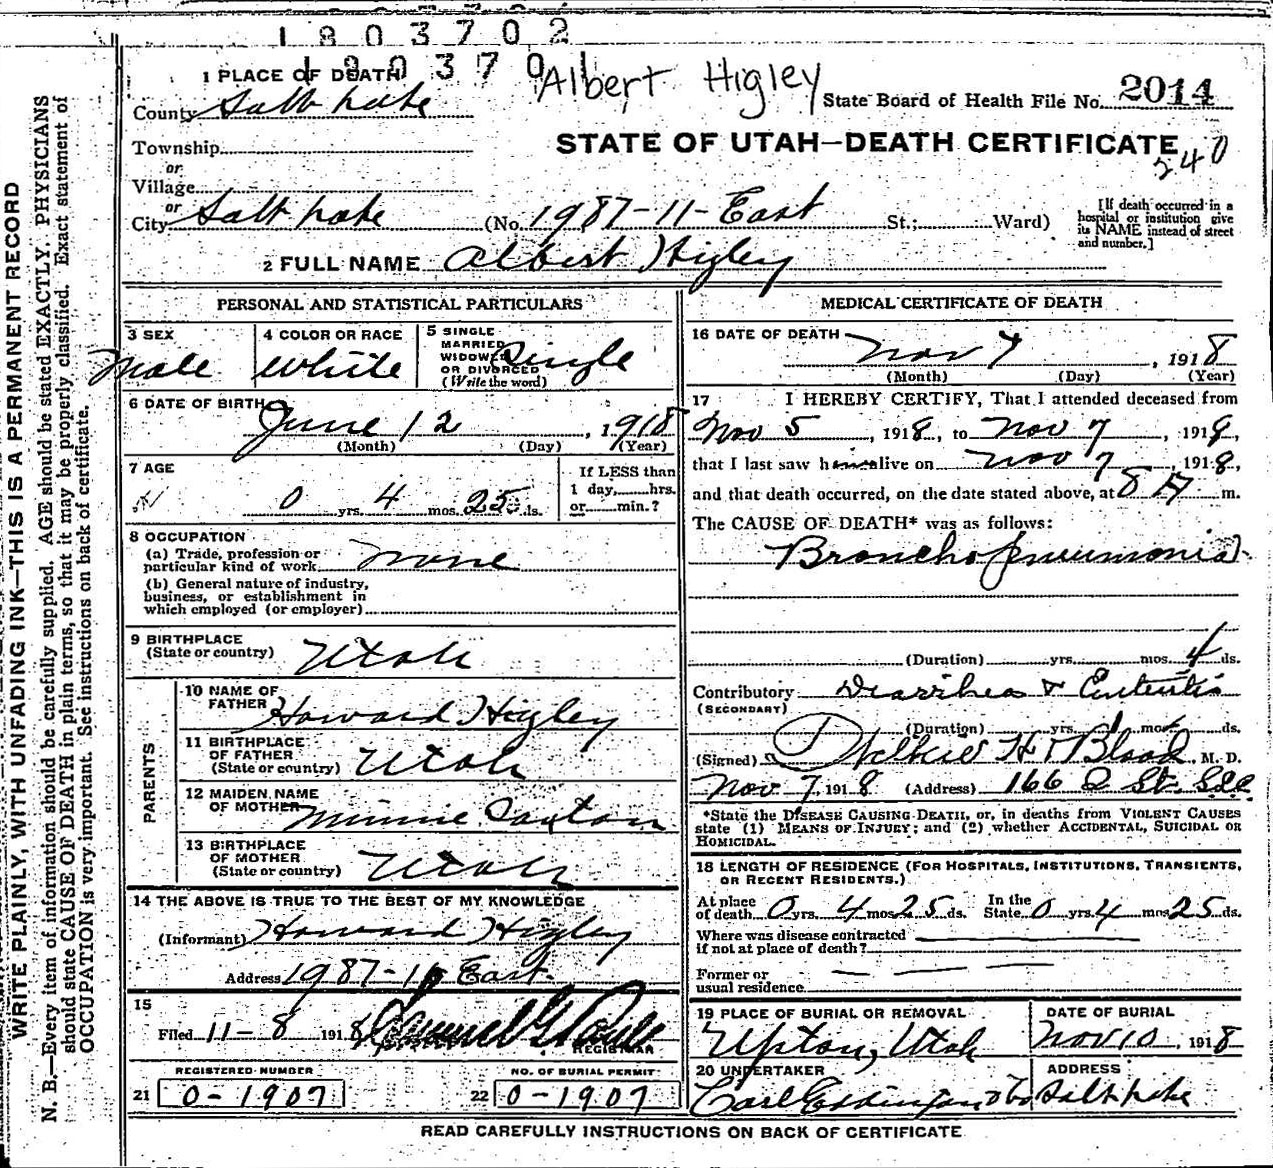 1803702
180370
Albert Higley
1 PLACE OF DEATH
County Salt Lake
State Board of Health File No. 2014
STATE OF UTAH—DEATH CERTIFICATE
240
Township
or
Village
or
City Salt Lake (No. 1987-11-East St.; Ward)
[If death occurred in a hospital or institution give its NAME instead of street and number.]
2 FULL NAME Albert Higley
PERSONAL AND STATISTICAL PARTICULARS
3 SEX Male
4 COLOR OR RACE White
5 SINGLE MARRIED WIDOWED OR DIVORCED (Write the word) Single
6 DATE OF BIRTH June 12, 1918
(Month) (Day) (Year)
7 AGE 0 yrs. 4 mos. 25 ds.
If LESS than 1 day, hrs. or min.?
8 OCCUPATION
(a) Trade, profession or particular kind of work None
(b) General nature of industry, business, or establishment in which employed (or employer)
9 BIRTHPLACE (State or country) Utah
PARENTS
10 NAME OF FATHER Howard Higley
11 BIRTHPLACE OF FATHER (State or country) Utah
12 MAIDEN NAME OF MOTHER Minnie Paxton
13 BIRTHPLACE OF MOTHER (State or country) Utah
14 THE ABOVE IS TRUE TO THE BEST OF MY KNOWLEDGE
(Informant) Howard Higley
Address 1987-11 East
15
Filed 11-8 1918
REGISTRAR
REGISTERED NUMBER
21 0-1907
NO. OF BURIAL PERMIT
22 0-1907
MEDICAL CERTIFICATE OF DEATH
16 DATE OF DEATH Nov 7, 1918
(Month) (Day) (Year)
17 I HEREBY CERTIFY, That I attended deceased from
Nov 5, 1918, to Nov 7, 1918,
that I last saw him alive on Nov 7, 1918,
and that death occurred, on the date stated above, at 8 A m.
The CAUSE OF DEATH* was as follows:
Broncho pneumonia
(Duration) yrs. mos. 4 ds.
Contributory (SECONDARY) Diarrhea & Enteritis
(Duration) yrs. 1 mos. ds.
(Signed) Wilkie H Blood, M. D.
Nov 7, 1918 (Address) 166 Q St. SLC
*State the DISEASE CAUSING DEATH, or, in deaths from VIOLENT CAUSES
state (1) MEANS OF INJURY; and (2) whether ACCIDENTAL, SUICIDAL OR
HOMICIDAL.
18 LENGTH OF RESIDENCE (FOR HOSPITALS, INSTITUTIONS, TRANSIENTS,
OR RECENT RESIDENTS.)
At place of death 0 yrs. 4 mos. 25 ds. In the State 0 yrs. 4 mos. 25 ds.
Where was disease contracted
if not at place of death?
Former or
usual residence
19 PLACE OF BURIAL OR REMOVAL Upton, Utah
DATE OF BURIAL Nov 10, 1918
20 UNDERTAKER
ADDRESS Salt Lake
READ CAREFULLY INSTRUCTIONS ON BACK OF CERTIFICATE
WRITE PLAINLY, WITH UNFADING INK—THIS IS A PERMANENT RECORD
N. B.—Every item of information should be carefully supplied. AGE should be stated EXACTLY. PHYSICIANS
should state CAUSE OF DEATH in plain terms, so that it may be properly classified. Exact statement of
OCCUPATION is very important. See instructions on back of certificate.